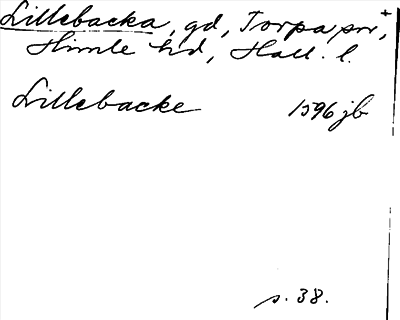 Lillebacka, gd, Torpa sn, +
Himle hd, Hall. l.
Lillebacke 1596 jb
s. 38.